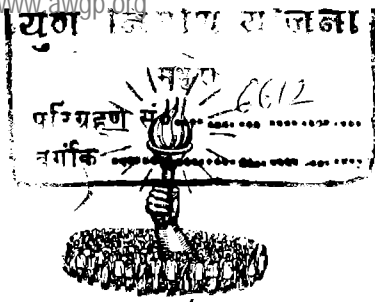 www.awgp.org
युग निर्माण योजना
मथुरा
परिग्रहण सं०
वर्गांक